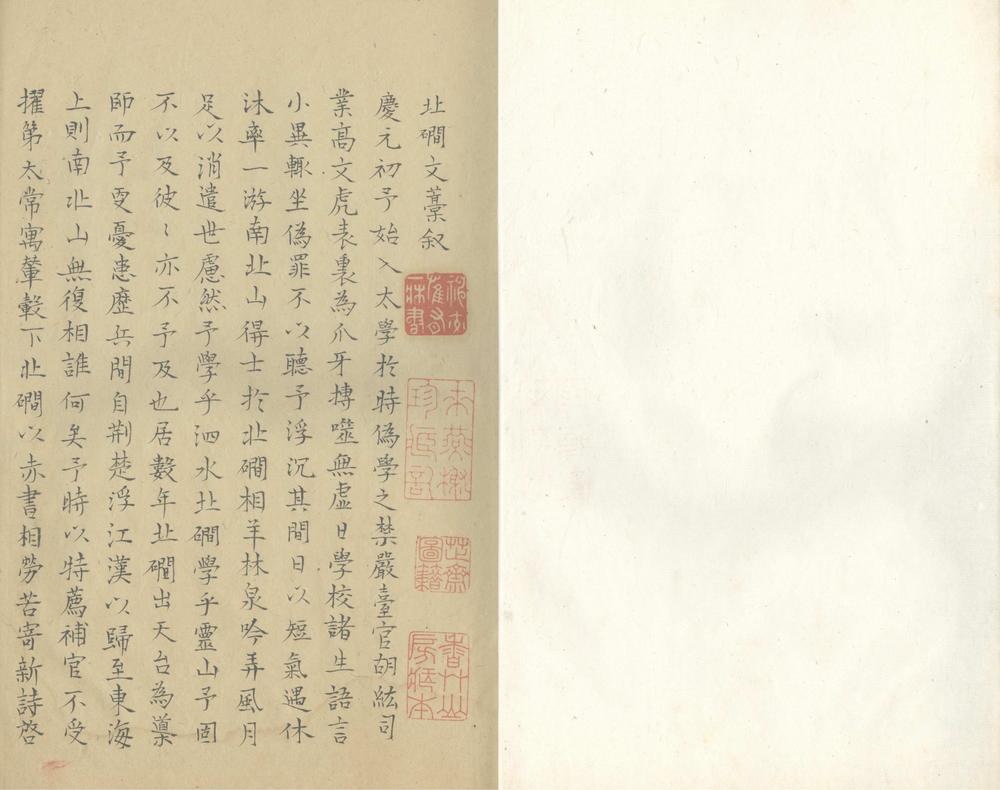 北磵文藁叙
慶元初予始入太學於時偽學之禁嚴臺官胡紘司
業高文虎表裏為爪牙摶噬無虛日學校諸生語言
小異輒坐偽罪不以聽予浮沉其間日以短氣遇休
沐率一游南北山得士於北磵相羊林泉吟弄風月
足以消遣世慮然予學乎泗水北磵學乎靈山予固
不以及彼〻亦不予及也居數年北磵出天台為導
師而予更憂患歷兵間自荆楚浮江漢以歸至東海
上則南北山無復相誰何矣予時以特薦補官不受
擢第太常寓輦轂下北磵以赤書相勞苦寄新詩啓
朱燕榭珍藏記
芷齋圖籍
香竹山房藏本